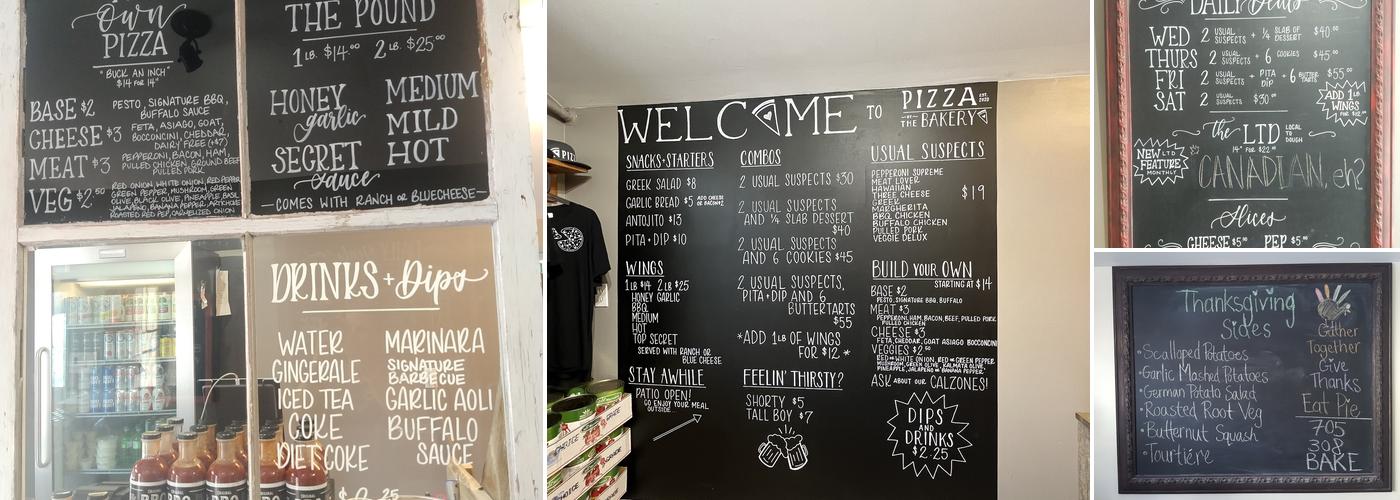 Own
PIZZA
"BUCK AN INCH"
$14 FOR 14"
BASE $2
PESTO, SIGNATURE BBQ,
BUFFALO SAUCE
CHEESE $3
FETA, ASIAGO, GOAT,
BOCCONCINI, CHEDDAR,
DAIRY FREE (+$7)
MEAT $3
PEPPERONI, BACON, HAM,
PULLED CHICKEN, GROUND BEEF
PULLED PORK
VEG $2.50
RED ONION, WHITE ONION, RED PEPPER
GREEN PEPPER, MUSHROOM, GREEN
OLIVE, BLACK OLIVE, PINEAPPLE, BASIL
JALAPENO, BANANA PEPPER, ARTICHOKE
ROASTED RED PEP, CARMELIZED ONION
THE POUND
1 LB. $14.00 2 LB. $25.00
HONEY
garlic
SECRET
Sauce
MEDIUM
MILD
HOT
COMES WITH RANCH OR BLUECHEESE
DRINKS + Dips
WATER
GINGERALE
ICED TEA
COKE
DIET COKE
MARINARA
SIGNATURE
BARBECUE
GARLIC AOLI
BUFFALO
SAUCE
WELCOME TO
PIZZA EST. 2020
AT THE BAKERY
SNACKS+STARTERS
GREEK SALAD $8
GARLIC BREAD $5 ADD CHEESE OR BACON +2
ANTOJITO $13
PITA+DIP $10
WINGS
1LB $14 2LB $25
HONEY GARLIC
BBQ
MEDIUM
HOT
TOP SECRET
SERVED WITH RANCH OR
BLUE CHEESE
STAY AWHILE
PATIO OPEN!
GO ENJOY YOUR MEAL
OUTSIDE
COMBOS
2 USUAL SUSPECTS $30
2 USUAL SUSPECTS
AND 1/4 SLAB DESSERT
$40
2 USUAL SUSPECTS
AND 6 COOKIES $45
2 USUAL SUSPECTS,
PITA+DIP AND 6
BUTTERTARTS
$55
*ADD 1LB OF WINGS
FOR $12.*
FEELIN' THIRSTY?
SHORTY $5
TALL BOY $7
USUAL SUSPECTS
PEPPERONI SUPREME
MEAT LOVER
HAWAIIAN
THREE CHEESE
GREEK
MARGHERITA
BBQ CHICKEN
BUFFALO CHICKEN
PULLED PORK
VEGGIE DELUX
$19
BUILD YOUR OWN
STARTING AT $14
BASE $2
PESTO, SIGNATURE BBQ, BUFFALO
MEAT $3
PEPPERONI, HAM, BACON, BEEF, PULLED PORK
PULLED CHICKEN
CHEESE $3
FETA, CHEDDAR, GOAT ASIAGO BOCCONCINI
VEGGIES $2.50
RED OR WHITE ONION, RED OR GREEN PEPPER
MUSHROOM, GREEN OLIVE, KALMATA OLIVE,
PINEAPPLE, JALAPENO OR BANANA PEPPER
ASK ABOUT OUR CALZONES!
DIPS
AND
DRINKS
$2.25
DAILY Deals
WED 2 USUAL SUSPECTS + 1/4 SLAB OF DESSERT $40.00
THURS 2 USUAL SUSPECTS + 6 COOKIES $45.00
FRI 2 USUAL SUSPECTS + PITA DIP + 6 BUTTER TARTS $55.00
SAT 2 USUAL SUSPECTS $30.00
ADD 1LB
WINGS
FOR $12
the LTD LOCAL TO DOUGH
14" FOR $22
NEW LTD
FEATURE
MONTHLY
CANADIAN, eh?
Slices
CHEESE $5.00 PEP $5.00
Thanksgiving
Sides
•Scalloped Potatoes
•Garlic Mashed Potatoes
•German Potato Salad
•Roasted Root Veg
•Butternut Squash
•Tourtiére
Gather
Together
Give
Thanks
Eat Pie
705
308
BAKE